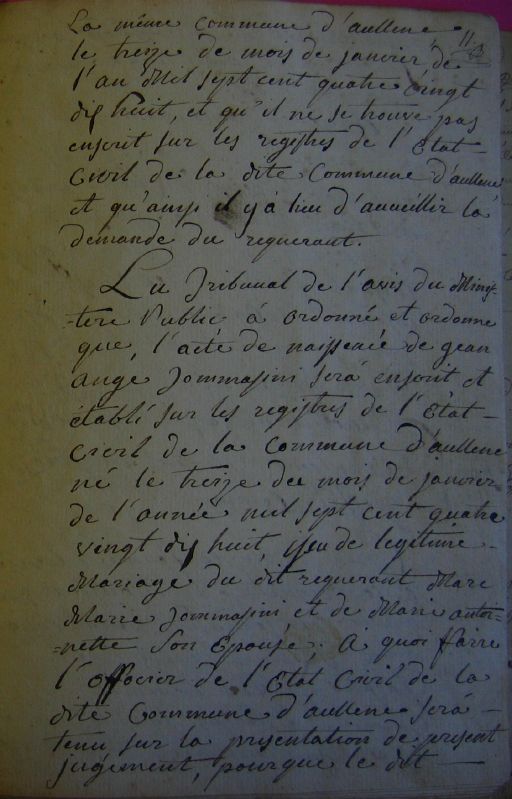 La même commune d'aullene
le treize de mois de janvier de
l'an Mil sept cent quatre vingt
dis huit, et qu'il ne se trouve pas
enscrit sur les registres de l'Etat
Civil de la dite Commune d'aullene
et qu'ainsy il y à lieu d'aucüillir la
demande du requerant.
Le Tribunal de l'avis du Minis-
-tere Public à ordonné et ordonne
que l'acte de naissence de jean
ange Tommasini serà enscrit et
établi sur les registres de l'Etat
Civil de la Commune d'aullene
né le treize du mois de janvier
de l'année mil sept cent quatre
vingt dis huit, issu de legitime
Mariage du dit requerant Marc
Marie Tommasini et de Marie antoi-
-nette son Epouse. A quoi faire
l'officier de l'Etat Civil de la
dite Commune d'aullene serà
tenu sur la présentation de présent
jugement, pourque le dit